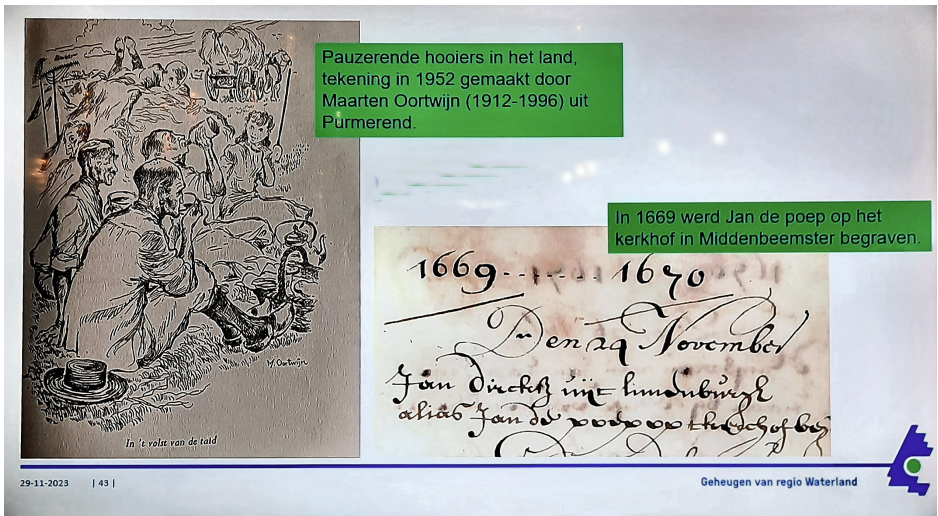 Pauzerende hooiers in het land,
tekening in 1952 gemaakt door
Maarten Oortwijn (1912-1996) uit
Purmerend.
M. Oortwijn
In 't volst van de taid
In 1669 werd Jan de poep op het
kerkhof in Middenbeemster begraven.
1669 . . . . . . 1670
Den 29 November
Jan dircksz uijt
alias Jan de poep op t kerckhof
29-11-2023 | 43 |
Geheugen van regio Waterland